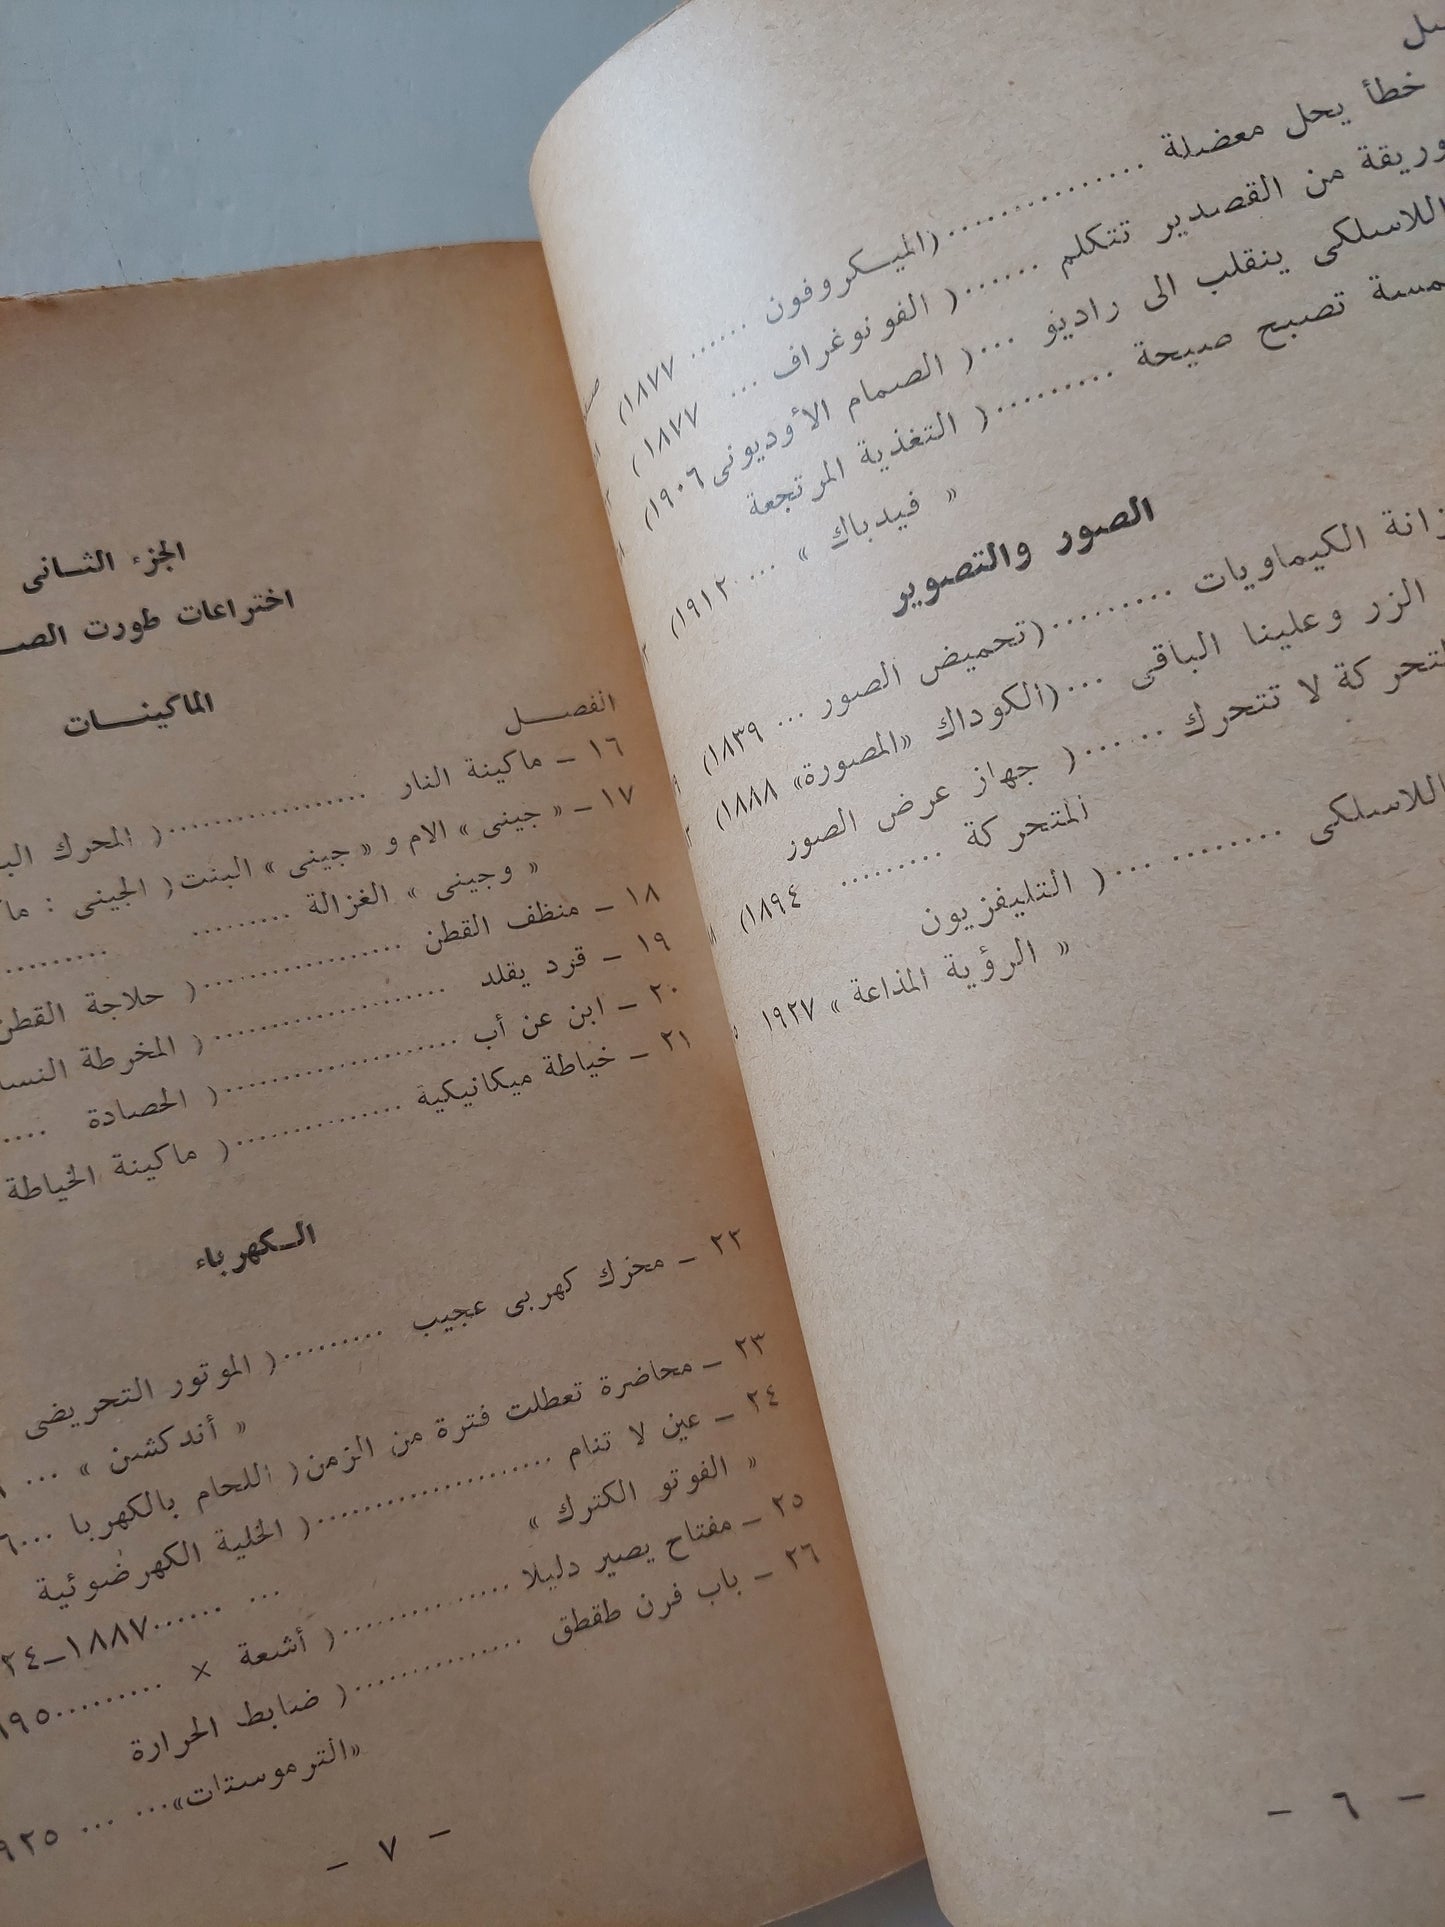 خطأ يحل معضلة ................(الميكروفون ...... ١٨٧٧)
وريقة من القصدير تتكلم ......( الفونوغراف ... ١٨٧٧ )
اللاسلكى ينقلب الى راديو ...( الصمام الأوديونى ١٩٠٦)
تصبح صيحة .........( التغذية المرتجعة
« فيدباك » ... ١٩١٢)
الصور والتصوير
الكيماويات .........(تحميض الصور ... ١٨٣٩)
الزر وعلينا الباقى ...(الكوداك «المصورة» ١٨٨٨)
لا تتحرك ......( جهاز عرض الصور
المتحركة ......... ١٨٩٤)
اللاسلكى ...........( التليفزيون
« الرؤية المذاعة » ١٩٢٧
- ٦ -
الجزء الثانى
اختراعات طورت
الماكينات
الفصل
١٦ - ماكينة النار .................( المحرك
١٧ - « جينى » الام و « جينى » البنت( الجينى :
« وجينى » الغزالة .........
١٨ - منظف القطن .................( حلاجة القطن
١٩ - قرد يقلد ....................( المخرطة
٢٠ - ابن عن أب ....................( الحصادة ....
٢١ - خياطة ميكانيكية ..............( ماكينة الخياطة
الكهرباء
٢٢ - محرك كهربى عجيب .........( الموتور التحريضى
« أندكشن » ...
٢٣ - محاضرة تعطلت فترة من الزمن( اللحام بالكهربا ...
٢٤ - عين لا تنام ....................( الخلية الكهرضوئية
« الفوتو الكترك »
... ......١٨٨٧-
٢٥ - مفتاح يصير دليلا ...............( أشعة × .........
٢٦ - باب فرن طقطق ..............( ضابط الحرارة
«الترموستات»... ...
- ٧ -